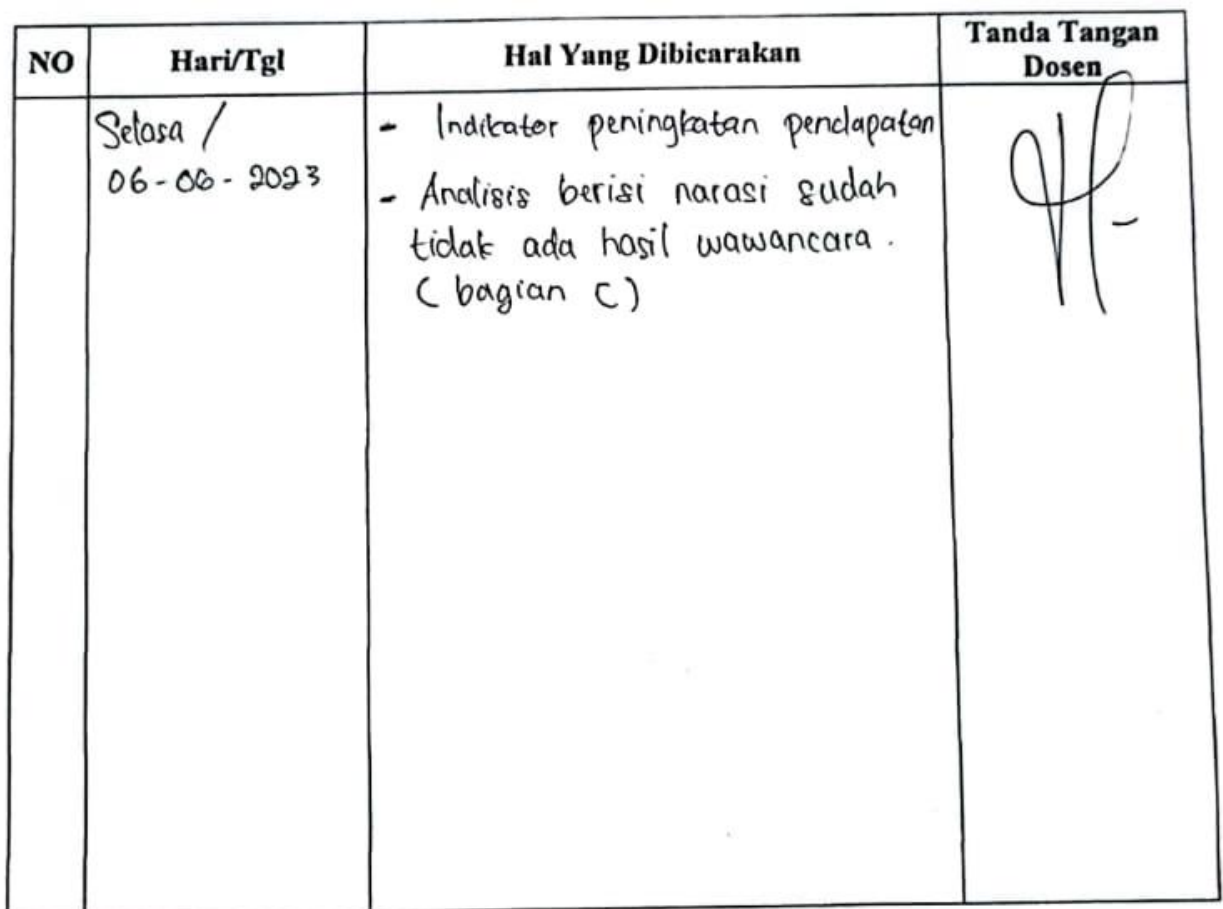 NO Hari/Tgl Hal Yang Dibicarakan Tanda Tangan
Dosen
Selasa /
06-06-2023
- Indikator peningkatan pendapatan
- Analisis berisi narasi sudah
tidak ada hasil wawancara.
(bagian C)